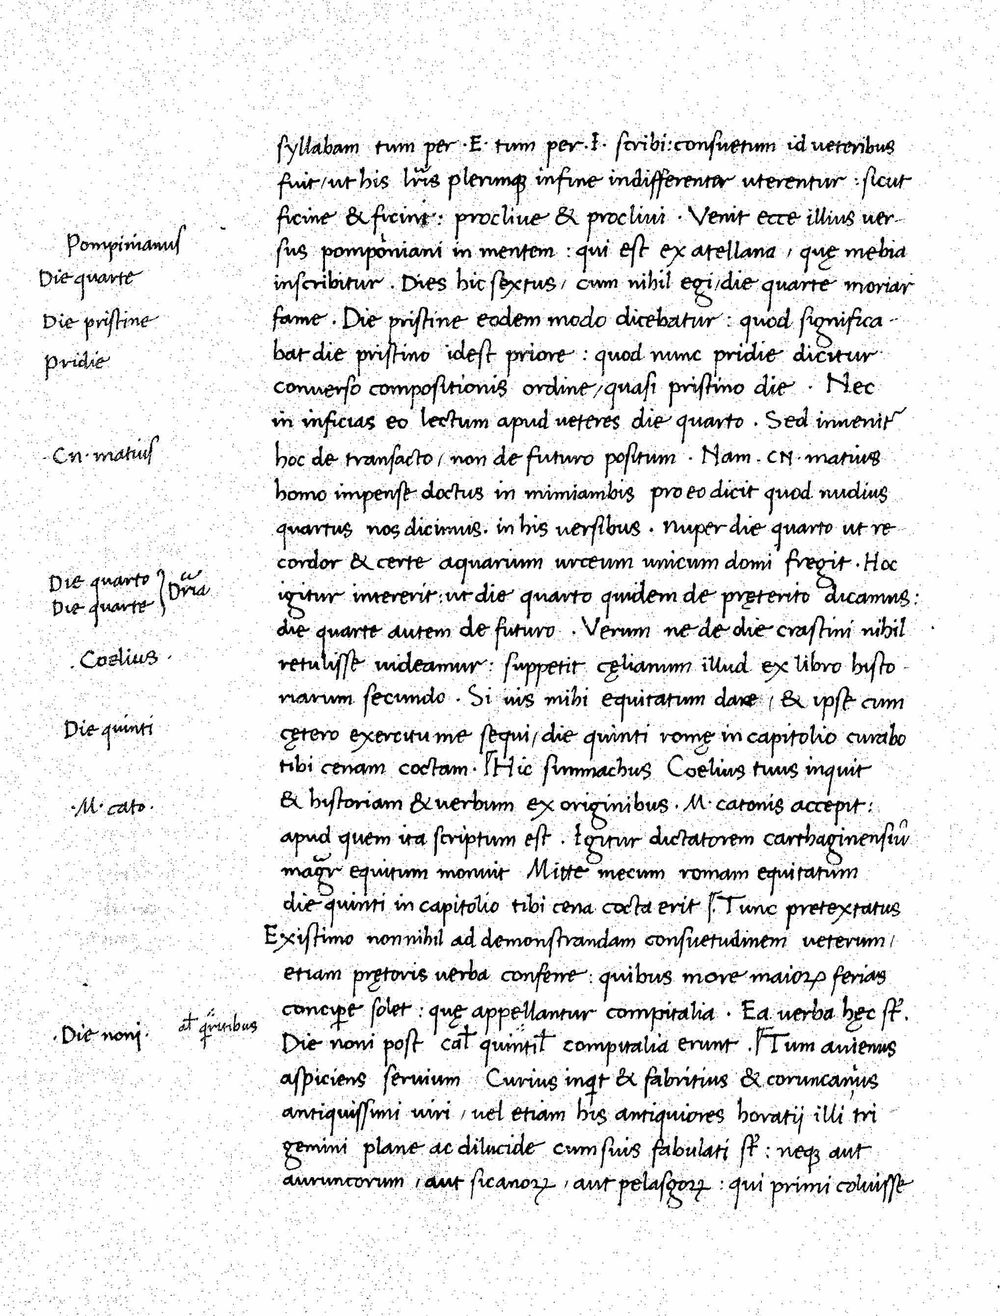 syllabam tum per ·E· tum per ·I· scribi: consuetum id ueteribus
fuit / ut his lr̃is plerumqꝫ in fine indifferenter uterentur : sicut
ficine & ficini : procliue & procliui · Venit ecce illius uer-
sus pomponiani in mentem : qui est ex atellana / quę mebia
inscribitur . Dies hic sextus / cum nihil egi / die quarte moriar
fame . Die pristine eodem modo dicebatur : quod significa-
bat die pristino idest priore : quod nunc pridie dicitur
conuerso compositionis ordine / quasi pristino die · Nec
in inficias eo lectum apud ueteres die quarto . Sed inuenit᷑
hoc de transacto / non de futuro positum · Nam . CN · matius
homo impense doctus in mimiambis pro eo dicit quod nudius
quartus nos dicimus. in his uersibus . Nuper die quarto ut re-
cordor & certe aquarium urceum unicum domi fregit . Hoc
igitur intererit : ut die quarto quidem de pręterito dicamus :
die quarte autem de futuro . Verum ne de die crastini nihil
retulisse uideamur : suppetit cęlianum illud ex libro histo-
riarum secundo . Si uis mihi equitatum dare / & ipse cum
cętero exercitu me sequi / die quinti romę in capitolio curabo
tibi cenam coctam . Hic summachus Coelius tuus inquit
& historiam & uerbum ex originibus . M · catonis accepit :
apud quem ita scriptum est . Igitur dictatorem carthaginensiũ
magr̃ equitum monuit Mitte mecum romam equitatum
die quinti in capitolio tibi cena cocta erit Tunc pretextatus
Existimo non nihil ad demonstrandam consuetudinem ueterum /
etiam pretoris uerba conferre : quibus more maioꝝ ferias
concipe solet : quę appellantur compitalia . Ea uerba hęc st̃.
Die noni post cal̃ quintil̃ compitalia erunt . Tum auienus
aspiciens seruium Curius inqt & fabritius & coruncanius
antiquissimi uiri / uel etiam his antiquiores horatij illi tri
gemini plane ac dilucide cum suis fabulati st̃ : neqꝫ aut
auruncorum / aut sicanoꝝ / aut pelasgoꝝ : qui primi coluisse
Pompinianus
Die quarte
Die pristine
Pridie
Cn · matius
Die quarto
Die quarte
Dr̃ia
. Coelius .
Die quinti
·M· cato·
·Die noni·